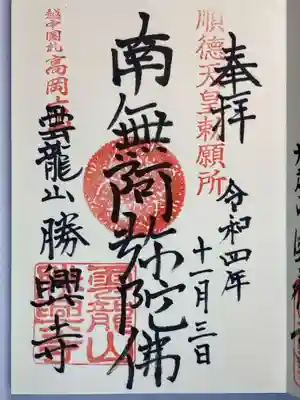 奉拝
順徳天皇勅願所
令和四年
十一月三日
南無阿弥陀佛
越中國札
高岡
雲龍山勝興寺
雲龍山
勝興寺